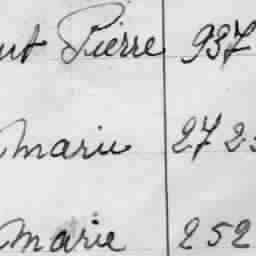 Pierre 937
Marie 272
Marie 252